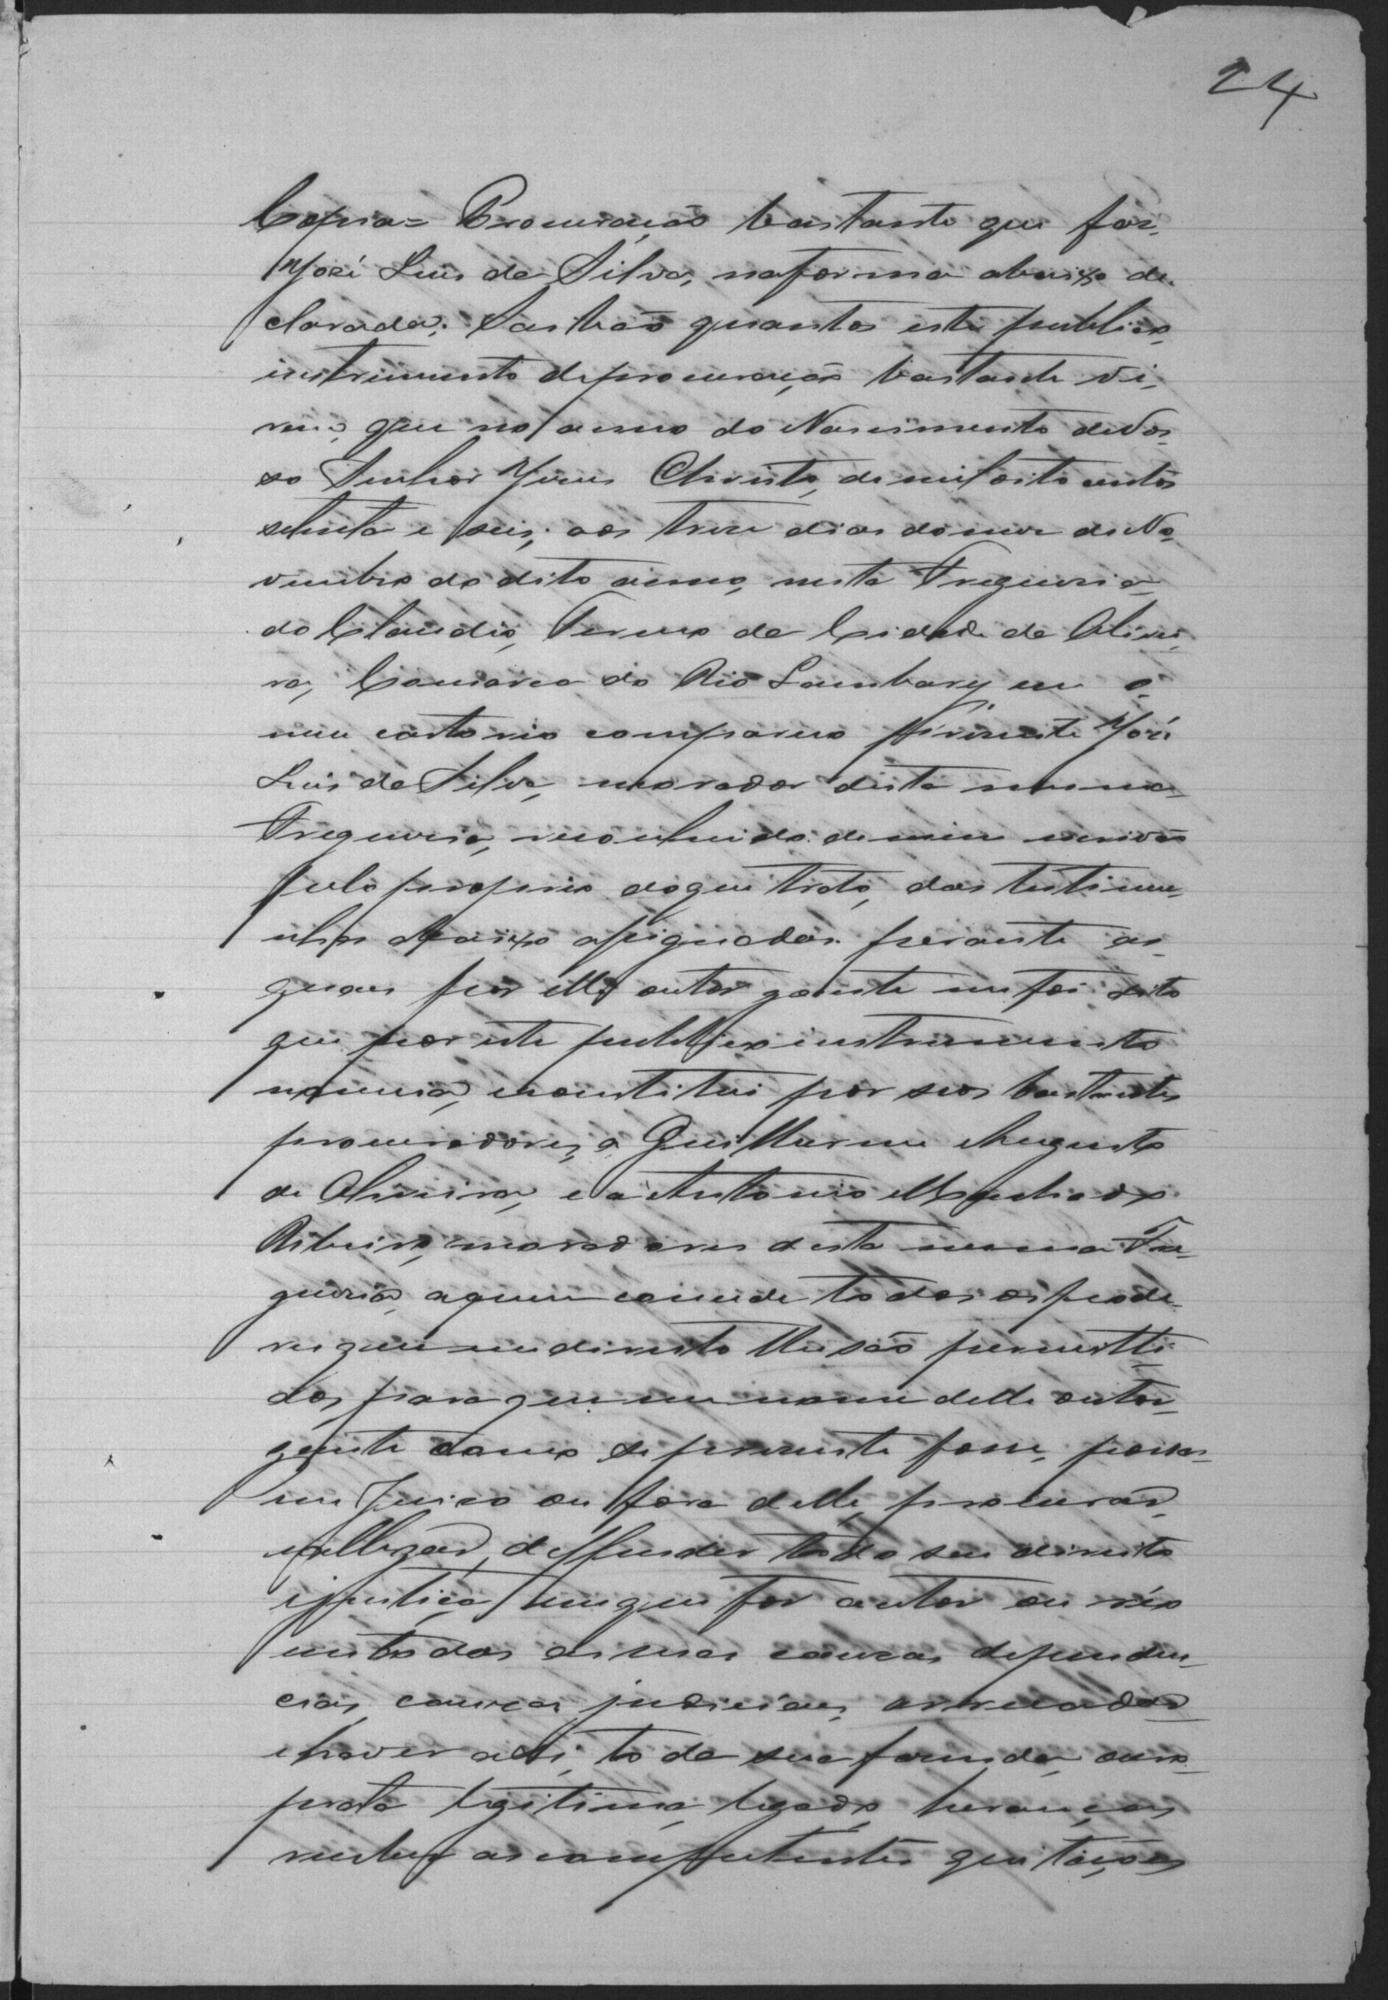 24
Copia = Procuração bastante que faz,
José Luis da Silva, na forma abaixo de-
clarada. Saibão quantos este publico
instrumento de procuração bastante vi-
rem, que no anno do Nascimento de Nos-
so Senhor Jesus Christo, de mil oito centos
setenta e seis, aos treze dias do mez de No-
vembro do dito anno, nesta Freguezia
do Claudio, Termo da Cidade de Olivei-
ra, Comarca do Rio Lambary, em o
meu cartorio compareo prezente José
Luis da Silva, morador desta mesma
Freguezia, reconhecido de mim escrivão
pelo proprio do que trato, das testimu-
nhas abaixo assignadas. perante as
quaes por elle outorgante me foi dito
que por este publico instrumento
nomeia, e constitui por seos bastantes
procuradores, a Guilherme Augusto
de Oliveira, e a Antonio Machado
Ribeiro, moradores desta mesma Fre-
guezia, a quem concede todos os pode-
res que em direito lhe são permitti-
dos, para que em nome delle outor-
gante como se prezente fosse, possa
em Juizo ou fora delle, procurar,
allegar, deffender todo seu direito
e justiça em que for autor ou réo
em todas as suas cauzas dependen-
cias, cauzas judiciaes, arrecadar
e haver a si, toda sua fazenda, ouro
prata legitima, legado, heranças,
receber as competentes quitações